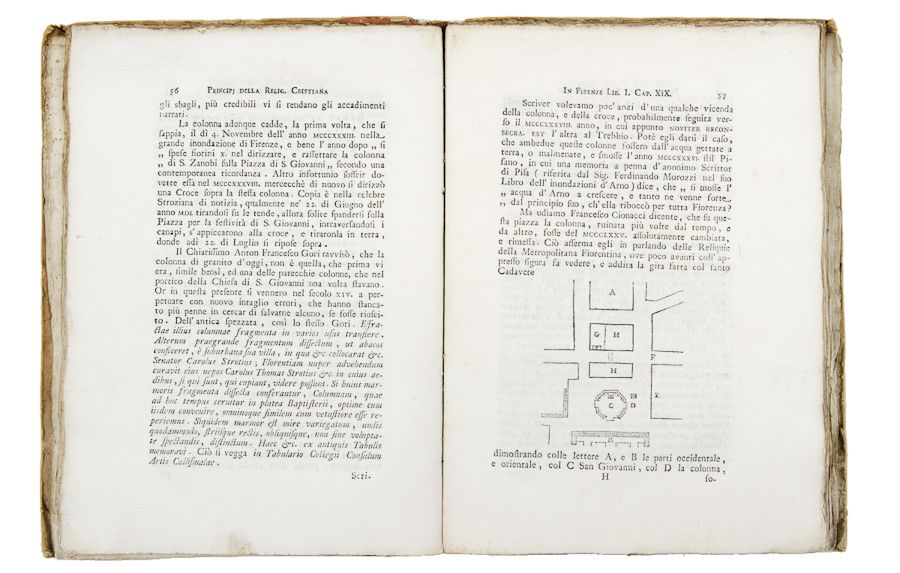 56 PRINCIPJ DELLA RELIG. CRISTIANA
gli sbagli, più credibili vi si rendano gli accadimenti
narrati.
La colonna adunque cadde, la prima volta, che si
sappia, il dì 4. Novembre dell' anno MCCCXXXIII. nella
grande inondazione di Firenze, e bene l' anno dopo „ si
„ spese fiorini x. nel dirizzare, e raffettare la colonna
„ di S. Zanobi sulla Piazza di S. Giovanni „ secondo una
contemporanea ricordanza. Altro infortunio soffrir do-
vette essa nel MCCCXXXVIII. mercecchè di nuovo si dirizzò
una Croce sopra la stessa colonna. Copia è nella celebre
Stroziana di notizia, qualmente ne' 22. di Giugno dell'
anno MDL tirandosi su le tende, allora solite spandersi sulla
Piazza per la festività di S. Giovanni, intraversandosi i
canapi, s' appiccarono alla croce, e tiraronla in terra,
donde adì 22. di Luglio si ripose sopra.
Il Chiarissimo Anton Francesco Gori ravvisò, che la
colonna di granito d' oggi, non è quella, che prima vi
era, simile bensì, ed una delle parecchie colonne, che nel
portico della Chiesa di S. Giovanni una volta stavano.
Or in questa presente si vennero nel secolo XIV. a per-
petuare con nuovo intaglio errori, che hanno stanca-
to più penne in cercar di salvarne alcuno, se fosse riusci-
to. Dell' antica spezzata, così lo stesso Gori. Effra-
ctae illius columnae fragmenta in varios usus transiere.
Alterum praegrande fragmentum dissectum, ut abacos
conficeret, è suburbana sua villa, in qua &c. collocarat &c.
Senator Carolus Strotius; Florentiam nuper advehendum
curavit eius nepos Carolus Thomas Strotius &c. in cuius ae-
dibus, si qui sunt, qui cupiant, videre possunt. Si huius mar-
moris fragmenta dissecta conferantur, Columnam, quae
ad hoc tempus cernitur in platea Baptisterii, optime cum
iisdem convenire, omninoque similem cum vetustiore esse re-
periemus. Siquidem marmor est mire variegatum, undis
quodammodo, striisque rectis, obliquisque, non sine volupta-
te spectandis, distinctum. Haec &c. ex antiquis Tabulis
memoravi. Ciò si vegga in Tabulario Collegii Consulum
Artis Callismalae.
Scri-
IN FIRENZE LIB. I. CAP. XIX. 57
Scriver volevamo poc' anzi d' una qualche vicenda
della colonna, e della croce, probabilmente seguita ver-
so il MCCCXXXVIII. anno, in cui appunto NOVITER RECON-
SECRA. EST l' altra al Trebbio. Potè egli darsi il caso,
che ambedue queste colonne fossero dall' acqua gettate a
terra, o malmenate, e smosse l' anno MCCCXXXVI. stil Pi-
sano, in cui una memoria a penna d' anonimo Scrittor
di Pisa ( riferita dal Sig. Ferdinando Morozzi nel suo
Libro dell' inondazioni d' Arno ) dice, che „ si mosse l'
„ acqua d' Arno a crescere, e tanto ne venne forte
„ dal principio suo, ch' ella riboccò per tutta Fiorenza?
Ma udiamo Francesco Cionacci dicente, che fu que-
sta piazza la colonna, ruinata più volte dal tempo, e
da altro, fosse del MCCCLXXV. assolutamente cambiata,
e rimessa. Ciò afferma egli in parlando delle Reliquie
della Metropolitana Fiorentina, ove poco avanti coll' ap-
presso figura fa vedere, e addita la gita fatta col santo
Cadavere
A
G H
F
H
C D E
B
dimostrando colle lettere A, e B le parti occidentale,
e orientale, col C San Giovanni, col D la colonna,
H so.